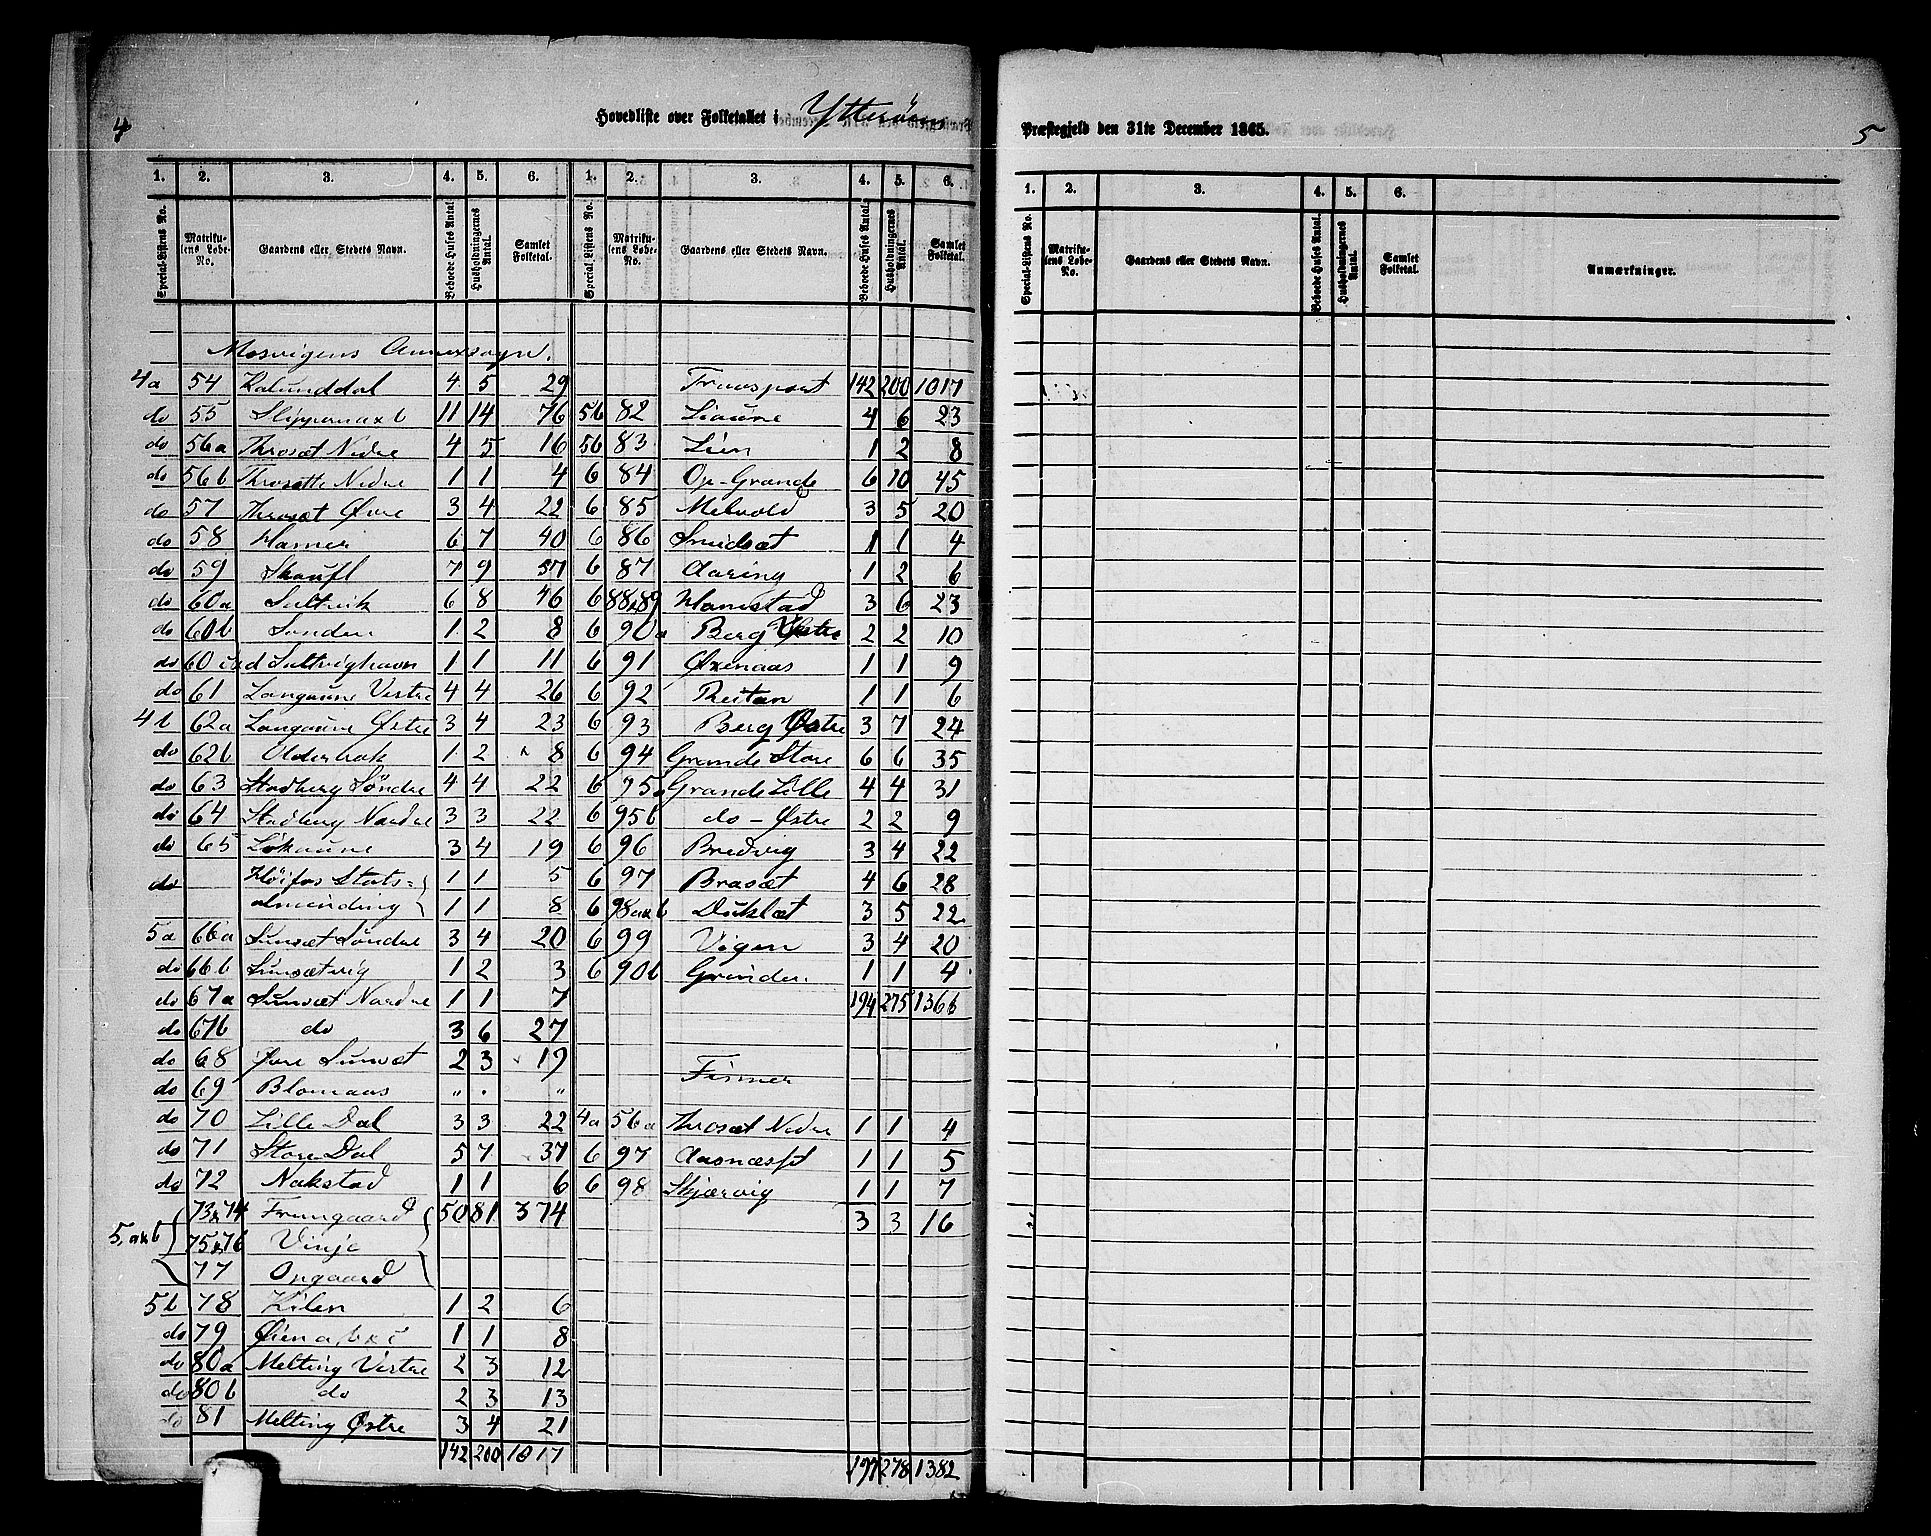 4
Hovedliste over Folketallet i Ytterøens
1. 2. 3. 4. 5. 6. 1. 2. 3. 4. 5. 6.
Special-Listens No. Matrikulens Løbe-No. Gaardens eller Stedets Navn. Beboede Huses Antal. Husholdningernes Antal. Samlet Folketal. Special-Listens No. Matrikulens Løbe-No. Gaardens eller Stedets Navn. Beboede Huses Antal. Husholdningernes Antal. Samlet Folketal.
Mosvigens Annexsogn.
4a 54 Kalunddal 4 5 29 Transport 142 200 1017
do 55 Slipper a x b 11 14 76 5b 82 Liaune 4 6 23
do 56a Throsæt Nedre 4 5 16 5b 83 Lien 1 2 8
do 56b Throsætte Nedre 1 1 4 6 84 Op-Grande 6 10 45
do 57 Throsæt Øvre 3 4 22 6 85 Melvold 3 5 20
do 58 Hamer 6 7 40 6 86 Smedsæt 1 1 4
do 59 Skaufl 7 9 57 6 87 Aaring 1 2 6
do 60a Sultvik 6 8 46 6 88x89 Hamstad 3 6 23
do 60b Sanden 1 2 8 6 90a Berg Vestre 2 2 10
do 60 c x d Sultvighavn 1 1 11 6 91 Øxenaas 1 1 9
do 61 Langaune Vestre 4 4 26 6 92 Reitan 1 1 6
4b 62a Langaune Østre 3 4 23 6 93 Berg Østre 3 7 24
do 62b Olderbak 1 2 8 6 94 Grande Store 6 6 35
do 63 Stadberg Søndre 4 4 22 6 95a Grande Lille 4 4 31
do 64 Stadberg Nordre 3 3 22 6 95b do - Østre 2 2 9
do 65 Løkaune 3 4 19 6 96 Bredvig 3 4 22
do Høifos Stats= 1 1 5 6 97 Brasæt 4 6 28
almending 1 1 8 6 98 a x b Duklæt 3 5 22
5a 66a Sunsæt Søndre 3 4 20 6 99 Vigen 3 4 20
do 66b Sunsætvig 1 2 3 6 90b Grinden 1 1 4
do 67a Sunsæt Nordre 1 1 7 194 275 1366
do 67b do 3 6 27
do 68 Øvre Sunsæt 2 3 19 Finner
do 69 Blomaas " . "
do 70 Lille Dal 3 3 22 4a 56a Throsæt Nedre 1 1 4
do 71 Store Dal 5 7 37 6 97 Aasnæsset 1 1 5
do 72 Nakstad 1 1 6 6 98 Skjærvig 1 1 7
73x74 Framgaard 50 81 374 3 3 16
5, a x b 75x76 Vinje
77 Opgaard
5b 78 Kilen 1 2 6
do 79 Øien a, b x c 1 1 8
do 80a Melting Vestre 2 3 12
do 80b do 2 3 13
do 81 Melting Østre 3 4 21
142 200 1017 197 278 1382
Præstegjeld den 31te December 1865.
5
1. 2. 3. 4. 5. 6.
Special-Listens No. Matrikulens Løbe-No. Gaardens eller Stedets Navn. Beboede Huses Antal. Husholdningernes Antal. Samlet Folketal. Anmærkninger.